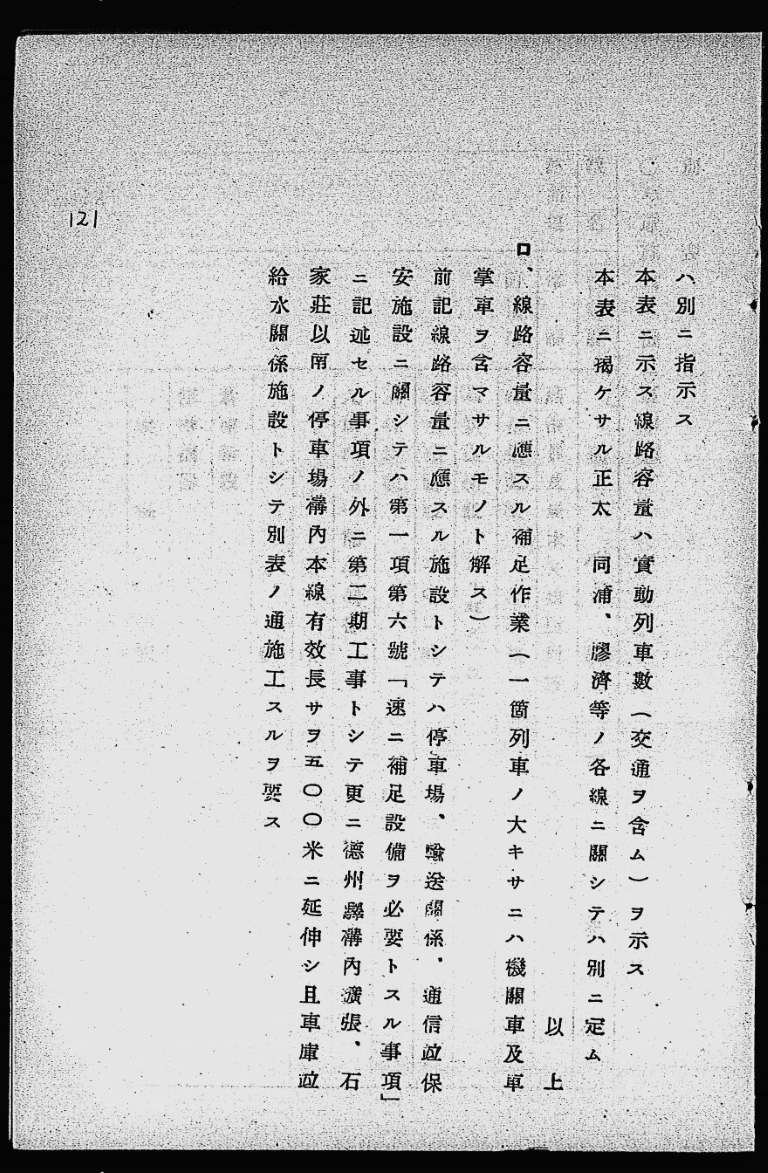 ハ別ニ指示ス
本表ニ示ス線路容量ハ實動列車數(交通ヲ含ム)ヲ示ス
本表ニ揭ケサル正太 同浦、膠濟等ノ各線ニ關シテハ別ニ定ム
以上
ロ、線路容量ニ應スル補足作業(一箇列車ノ大キサニハ機關車及車
掌車ヲ含マサルモノト解ス)
前記線路容量ニ應スル施設トシテハ停車場、輸送關係、通信竝保
安施設ニ關シテハ第一項第六號「速ニ補足設備ヲ必要トスル事項」
ニ記述セル事項ノ外ニ第二期工事トシテ更ニ德州驛構內擴張、石
家莊以南ノ停車場構內本線有效長サヲ五〇〇米ニ延伸シ且車庫竝
給水關係施設トシテ別表ノ通施工スルヲ要ス
121